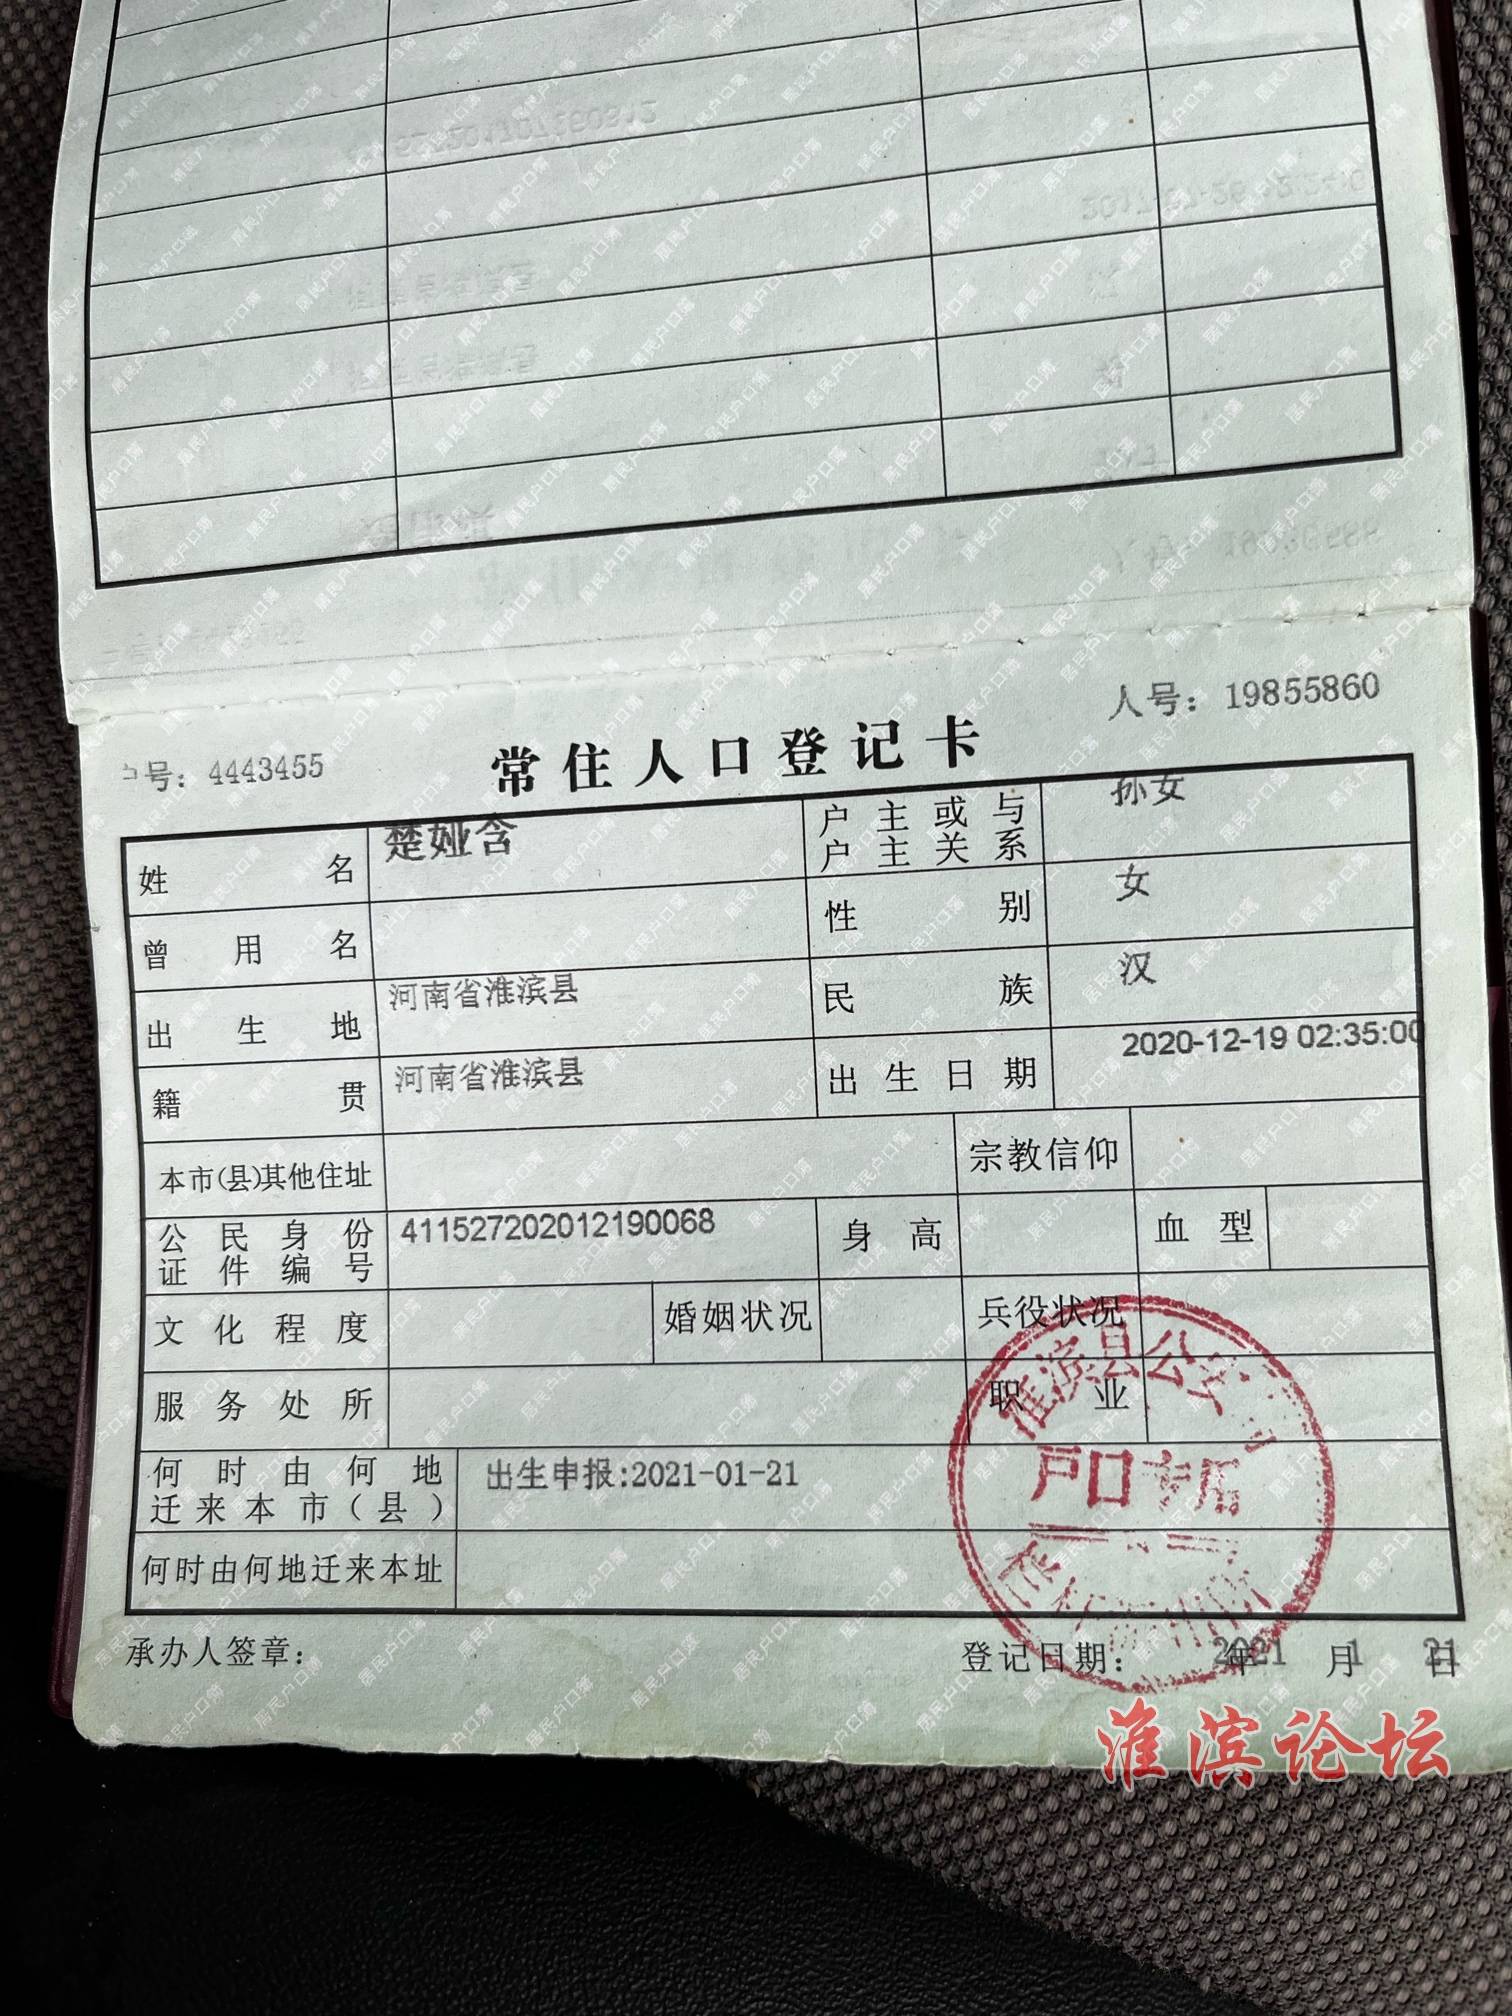 人号：19855860
号：4443455
常住人口登记卡
姓名 楚娅含 户主或与户主关系 孙女
曾用名 性别 女
出生地 河南省淮滨县 民族 汉
籍贯 河南省淮滨县 出生日期 2020-12-19 02:35:00
本市(县)其他住址 宗教信仰
公民身份证件编号 411527202012190068 身高 血型
文化程度 婚姻状况 兵役状况
服务处所 职业
何时由何地迁来本市(县) 出生申报:2021-01-21
何时由何地迁来本址
淮滨县公
户口专用
承办人签章：
登记日期： 2021年 1月 21日
淮滨论坛